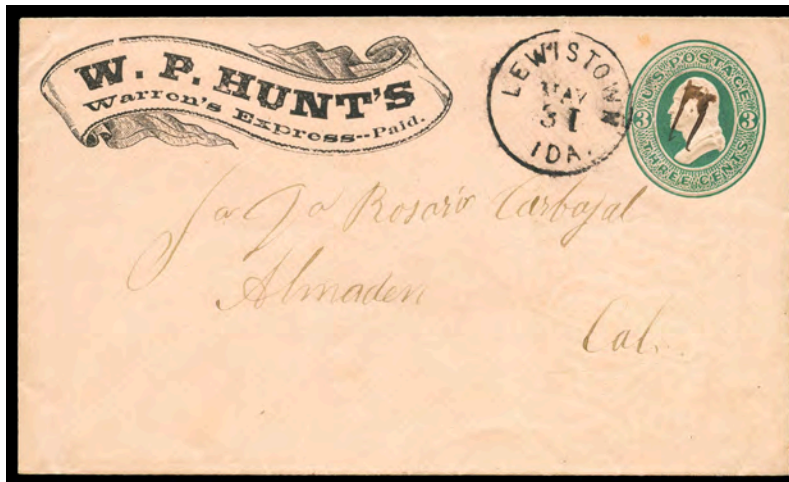 W. P. HUNT'S
Warren's Express--Paid.
LEWISTOWN
MAY
31
IDA.
U.S. POSTAGE
3 3
THREE CENTS
Rosario Carbajal
Almaden
Cal.